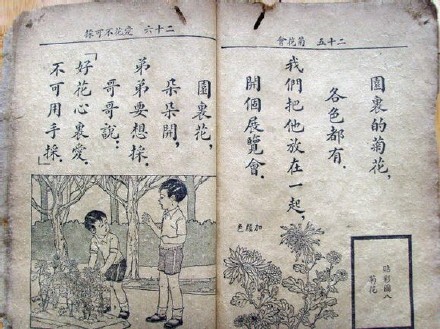 二十五 菊花會
園裏的菊花,
各色都有.
我們把他放在一起,
開個展覽會.
加顏色
貼彩圖八
菊花
二十六 愛花不可採
園裏花,
朵朵開,
弟弟要想採.
哥哥說:
「好花心裏愛.
不可用手採.」